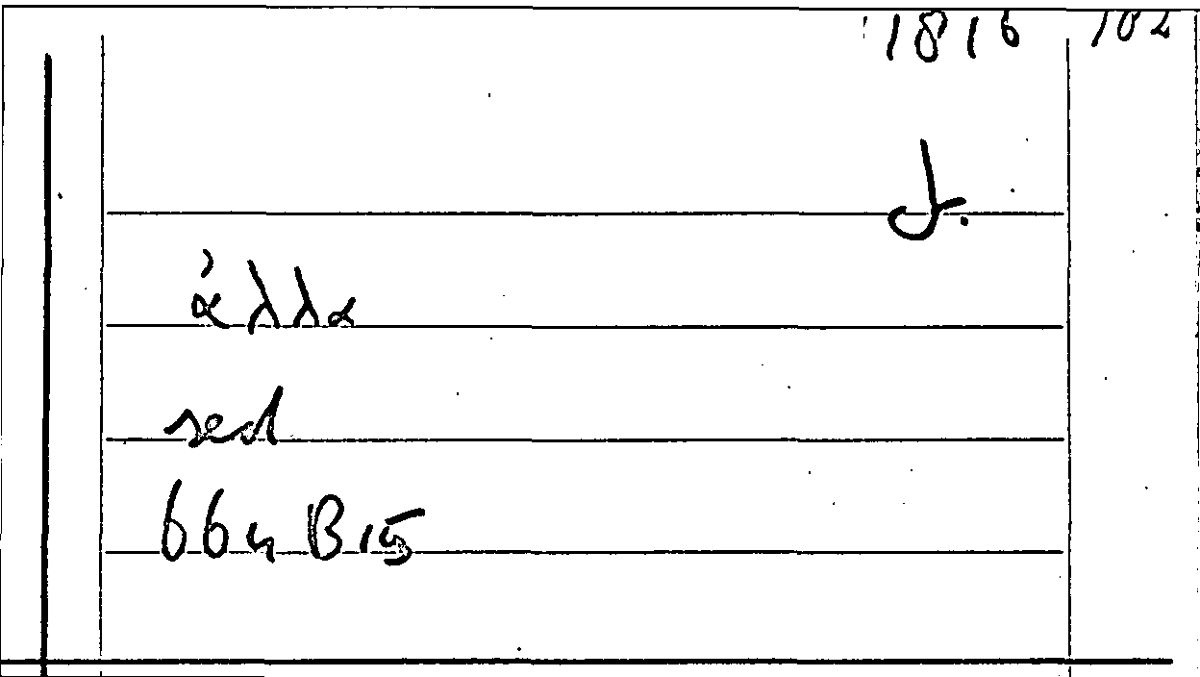 1816 102
J.
ἀλλα
sed
664 B 15